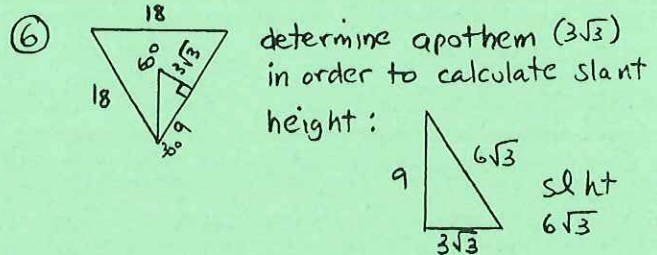 ⑥
18
18
60°
3√3
9
30°
determine apothem (3√3)
in order to calculate slant
height:
9
6√3
3√3
sl ht
6√3